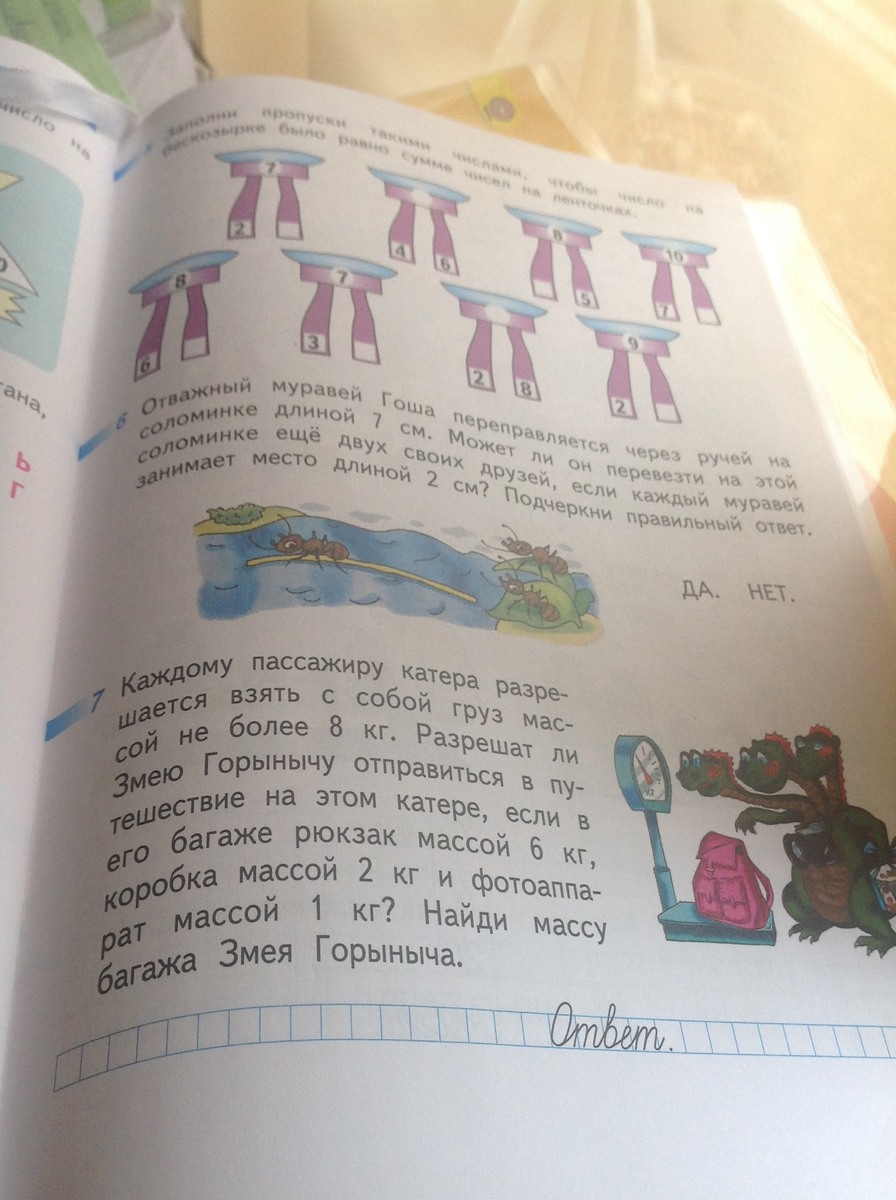 число на
Заполни пропуски такими числами, чтобы число на
бескозырке было равно сумме чисел на ленточках.
7
2
4 6
8
5
10
7
8
6
7
3
2 8
9
2
тана,
Ь
Г
6 Отважный муравей Гоша переправляется через ручей на
соломинке длиной 7 см. Может ли он перевезти на этой
соломинке ещё двух своих друзей, если каждый муравей
занимает место длиной 2 см? Подчеркни правильный ответ.
ДА. НЕТ.
7 Каждому пассажиру катера разре-
шается взять с собой груз мас-
сой не более 8 кг. Разрешат ли
Змею Горынычу отправиться в пу-
тешествие на этом катере, если в
его багаже рюкзак массой 6 кг,
коробка массой 2 кг и фотоаппа-
рат массой 1 кг? Найди массу
багажа Змея Горыныча.
кг
Ответ.